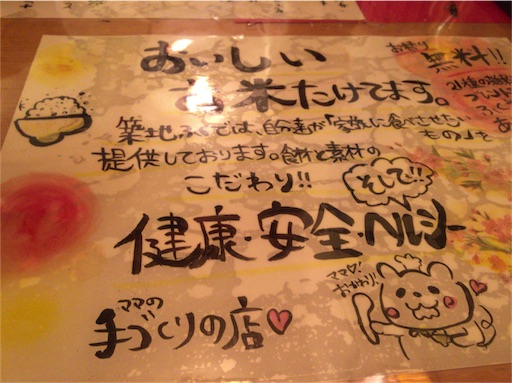 おいしい
お米たけてます。
築地ふくでは、自分達が「家族に食べさせたい
もの」を
提供しております。食材と素材の
こだわり!!
そして!!
健康・安全・ヘルシー
ママの
手づくりの店
ママと!
おかわり!
お替り
無料!!